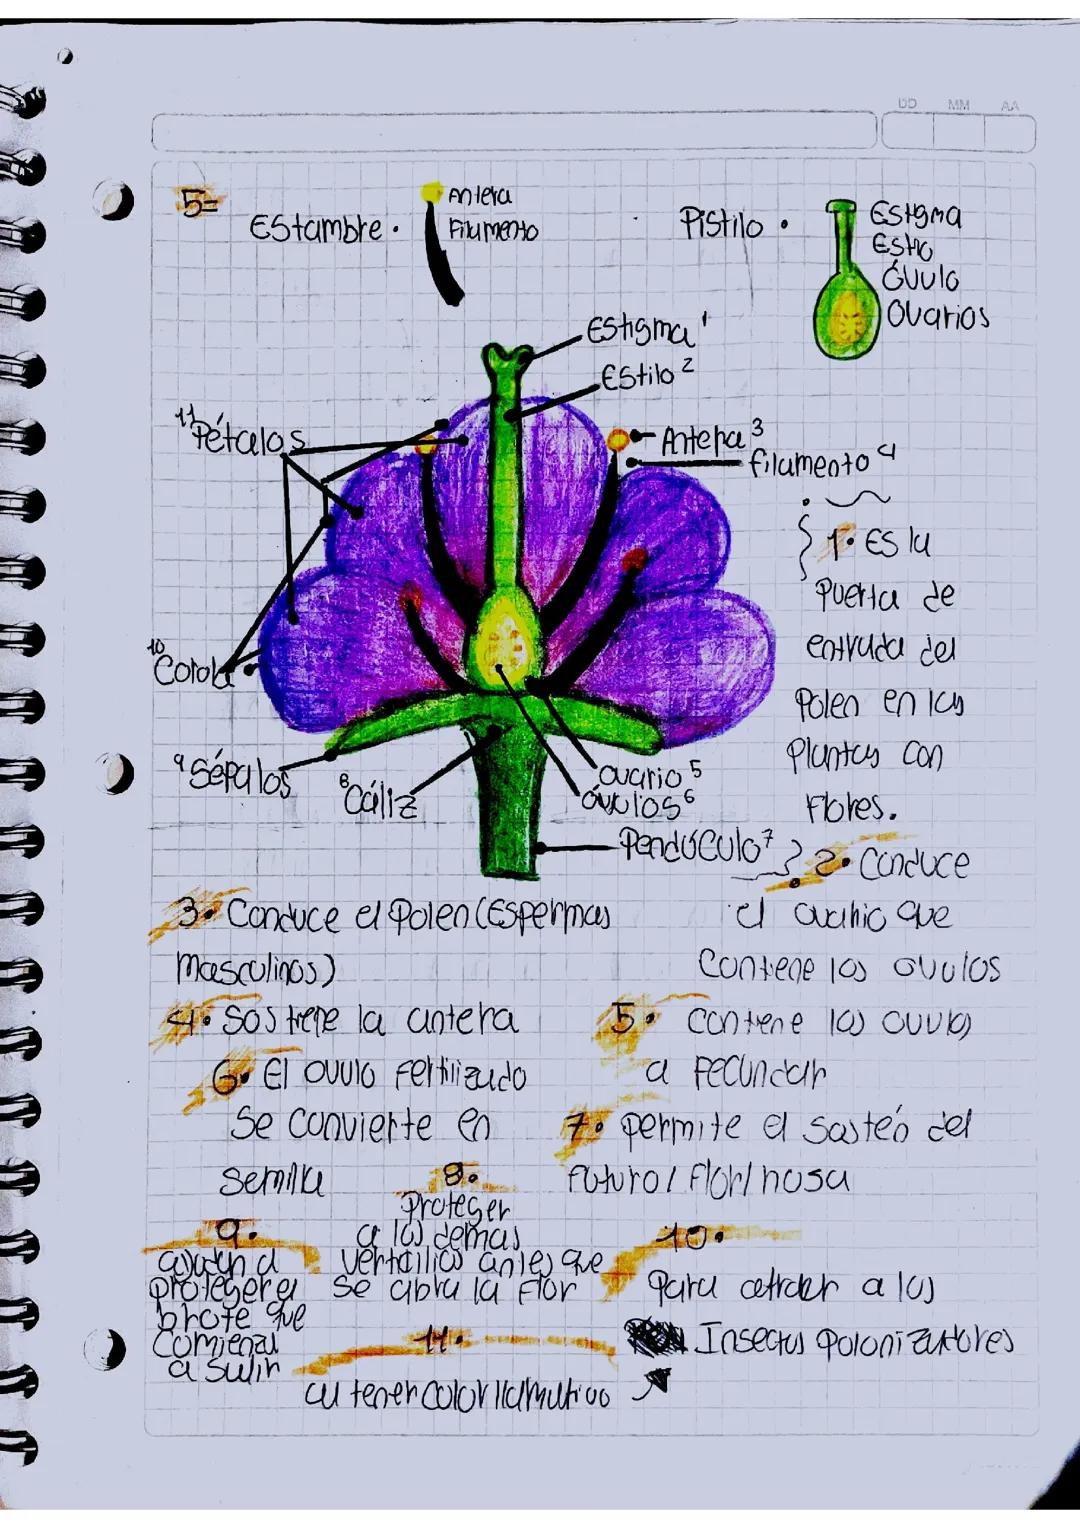 DD MM AA
5=
Estambre •
Antera
Filamento
Pistilo •
Estigma
Estilo
Óvulo
Ovarios
Estigma 1
Estilo 2
11 Pétalos
Antera 3
filamento 4
10 Corola
9 Sépalos
8 Cáliz
ovario 5
óvulos 6
Pendúculo 7
1. Es la
Puerta de
entrada del
Polen en las
Plantas con
Flores.
2. Conduce
el ovario que
Contiene los ovulos
3. Conduce el Polen (Espermas
Masculinos)
4. Sostiene la antera
5. Contiene los ovulos
a fecundar
6. El ovulo fertilizado
se convierte en
semilla
7. permite el Sostén del
futuro / flor/
8.
Proteger
a los demas
antes que
se abra la Flor
9.
ayudan a
proteger el
brote que
Comienza
a Salir
10.
Para atraer a los
Insectos Polonizadores
11.
al tener Color llamativo